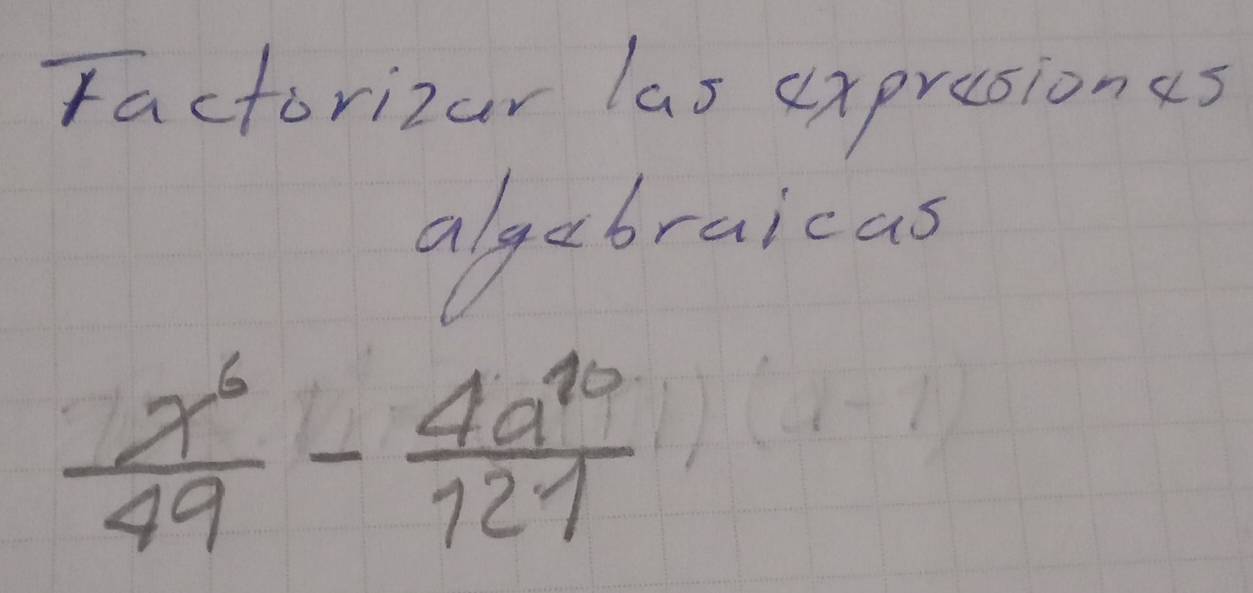 Factorizar las expresiones
algebraicas
x^6/49 - 4a^10/121